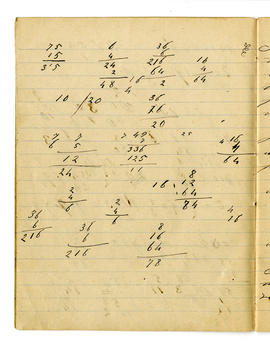 75 6 36
15 4 6 16
3'5 24 216 4
2 64 64
48 16 2
4
10 /20 36
26
20
7 7 7 49 25 16
6 5 7 4 4
12 336 64
24 125
11 8
16 12
2 64
4 2 84
6 4 4
36 6 16
6 36 8
216 6 16
216 64
78